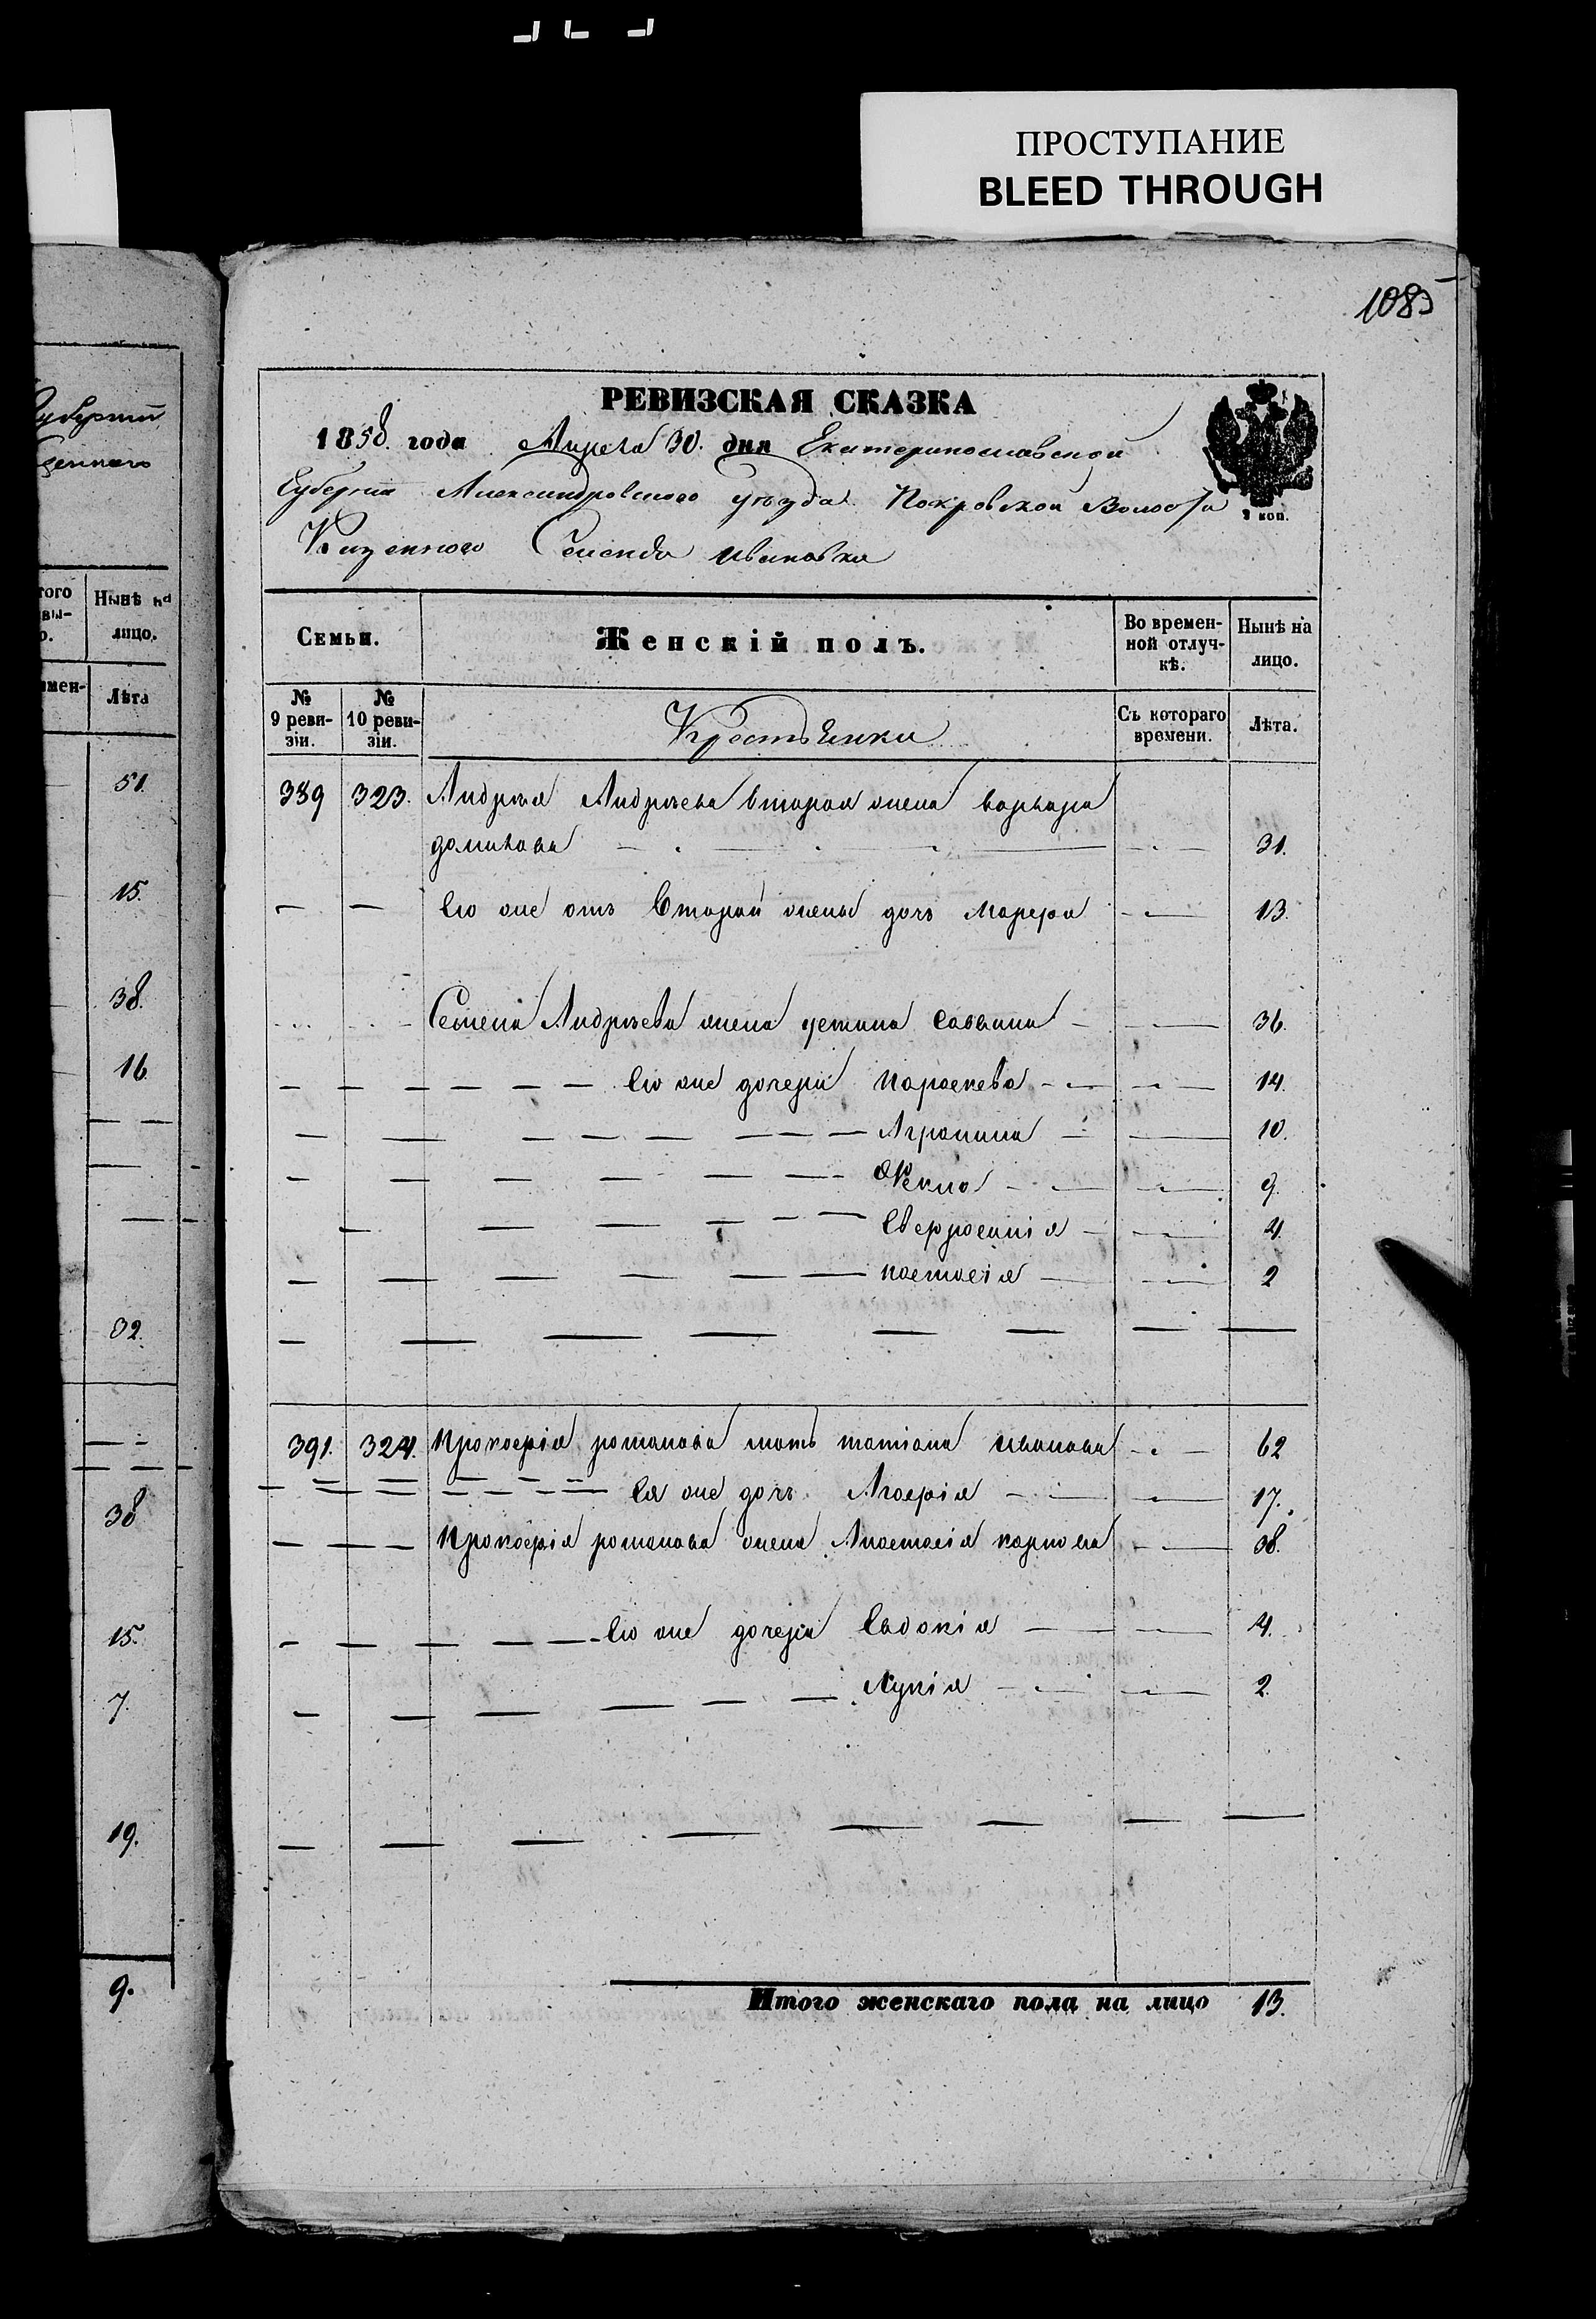 ПРОСТУПАНИЕ
BLEED THROUGH
1085
РЕВИЗСКАЯ СКАЗКА
1858 года Апреля 30. дня Екатеринославской
Губернии Александровского уѣзда Покровской Волости
Казенного Селенія Ивановки
2 коп.
Семьи.
Женскій полъ.
Во времен-
ной отлуч-
кѣ.
Нынѣ на
лицо.
№
9 реви-
зіи.
№
10 реви-
зіи.
Крестьянки
Съ котораго
времени.
Лѣта.
389 323. Андрея Андрѣева вторая жена варвара
31.
Его же отъ Второй жены дочь Марфа 13.
Семена Андрѣева жена устина саввина 36.
Его же дочери параскева 14.
Агрипина 10.
Фекла 9.
Евфросинія 4.
настасія 2
391. 324. Прокофія романова мать татіана иванова 62
Ея же дочь Агафія 17.
Прокофія романова жена Анастасія карпова 38.
Его же дочери Евдокія 4.
Лукія 2.
Итого женскаго пола на лицо 13.
Губерніи
Нынѣ на
лицо.
Лѣта
51.
15.
38.
16.
32.
38
15.
7.
19.
9.